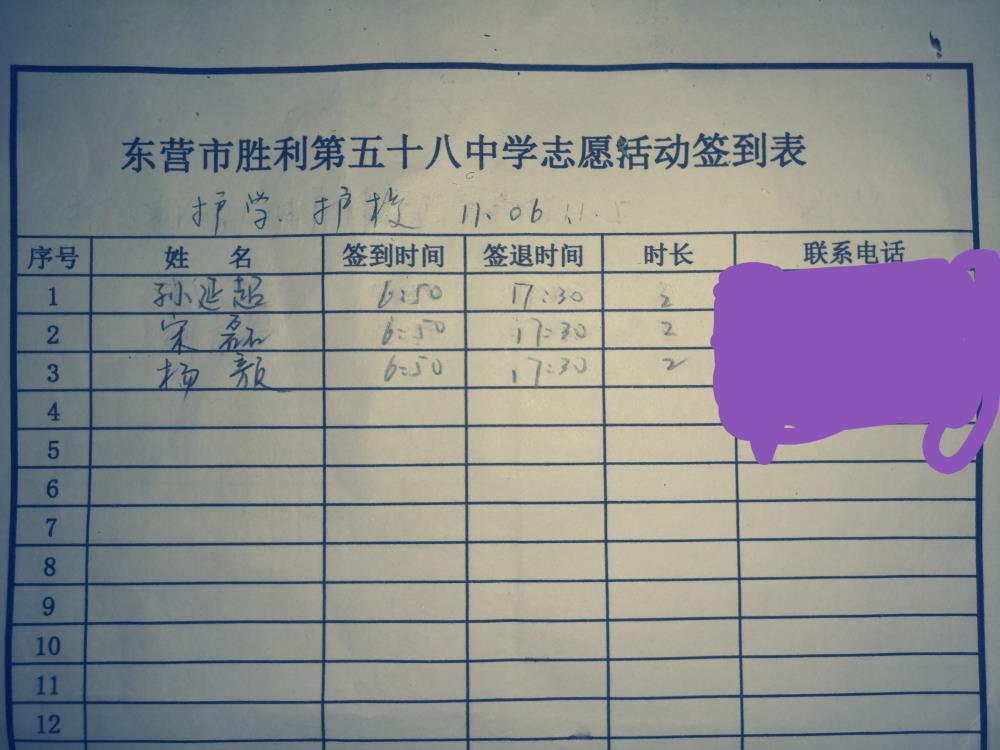 东营市胜利第五十八中学志愿活动签到表
护学.护校 11.06 11.5
序号 姓 名 签到时间 签退时间 时长 联系电话
1 孙延超 6:50 17:30 2
2 宋磊 6:50 17:30 2
3 杨颜 6:50 17:30 2
4
5
6
7
8
9
10
11
12